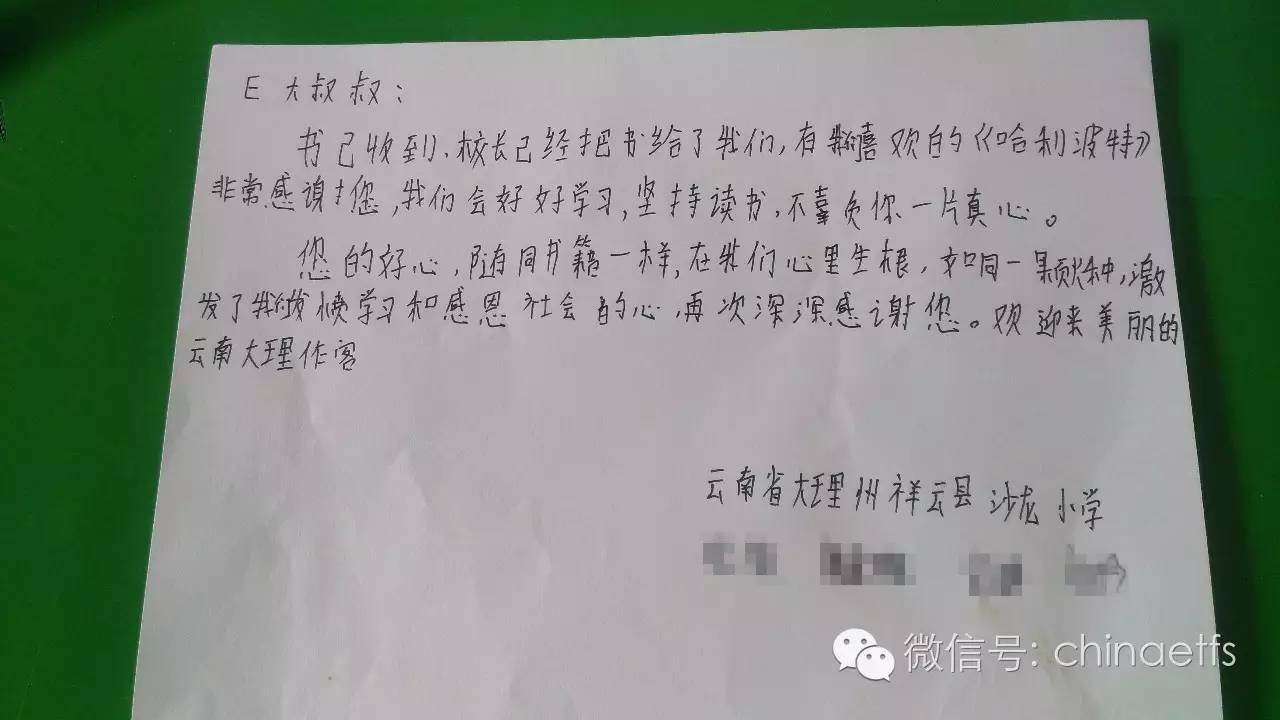 E 大叔叔：
书已收到、校长已经把书给了我们，有我们喜欢的《哈利波特》
非常感谢您，我们会好好学习，坚持读书，不辜负你一片真心。
您的好心，随同书籍一样，在我们心里生根，如同一颗火种，激
发了我们发愤学习和感恩社会的心，再次深深感谢您。欢迎来美丽的
云南大理作客
云南省大理州祥云县沙龙小学
微信号: chinaetfs